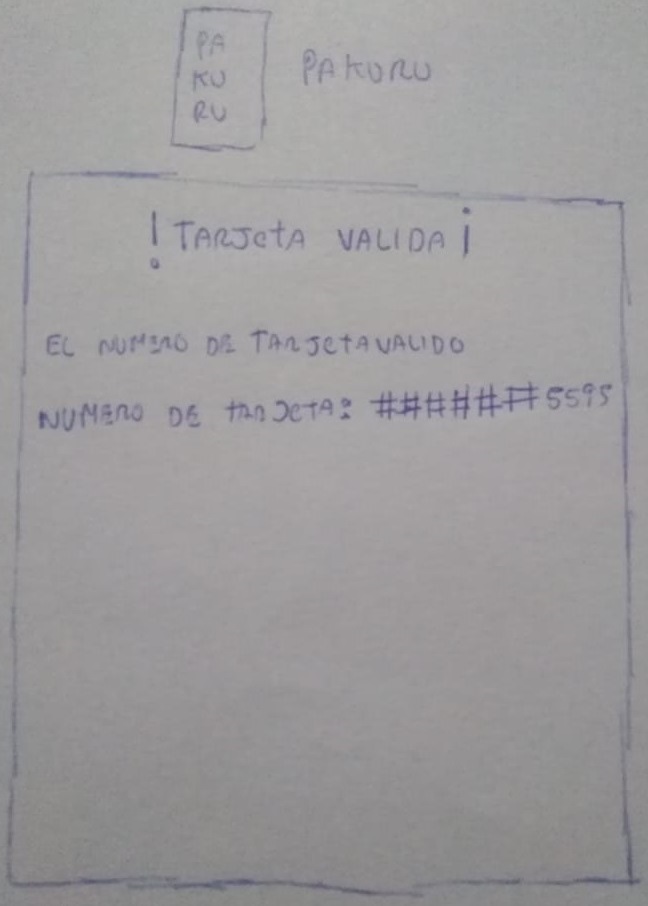 PA
KU
RU
PAKURU
! TARJETA VALIDA ¡
EL NUMERO DE TARJETA VALIDO
NUMERO DE TARJETA: ######5595